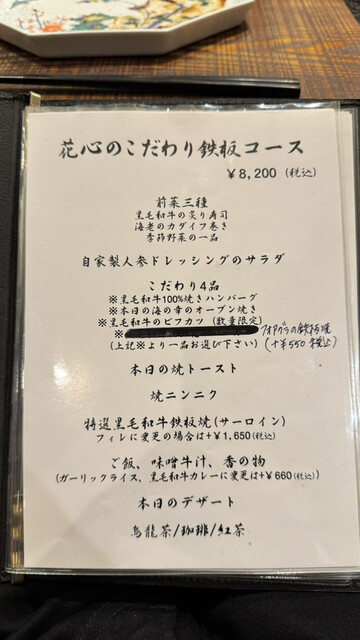 花心のこだわり鉄板コース
¥8,200 (税込)
前菜三種
黒毛和牛の炙り寿司
海老のカダイフ巻き
季節野菜の一品
自家製人参ドレッシングのサラダ
こだわり4品
※黒毛和牛100%焼きハンバーグ
※本日の海の幸のオーブン焼き
※黒毛和牛のビフカツ (数量限定)
※ フォアグラの鉄板焼
(上記※より一品お選び下さい) (+¥550 税込)
本日の焼トースト
焼ニンニク
特選黒毛和牛鉄板焼(サーロイン)
フィレに変更の場合は+¥1,650(税込)
ご飯、味噌牛汁、香の物
(ガーリックライス、黒毛和牛カレーに変更は+¥660(税込))
本日のデザート
烏龍茶/珈琲/紅茶